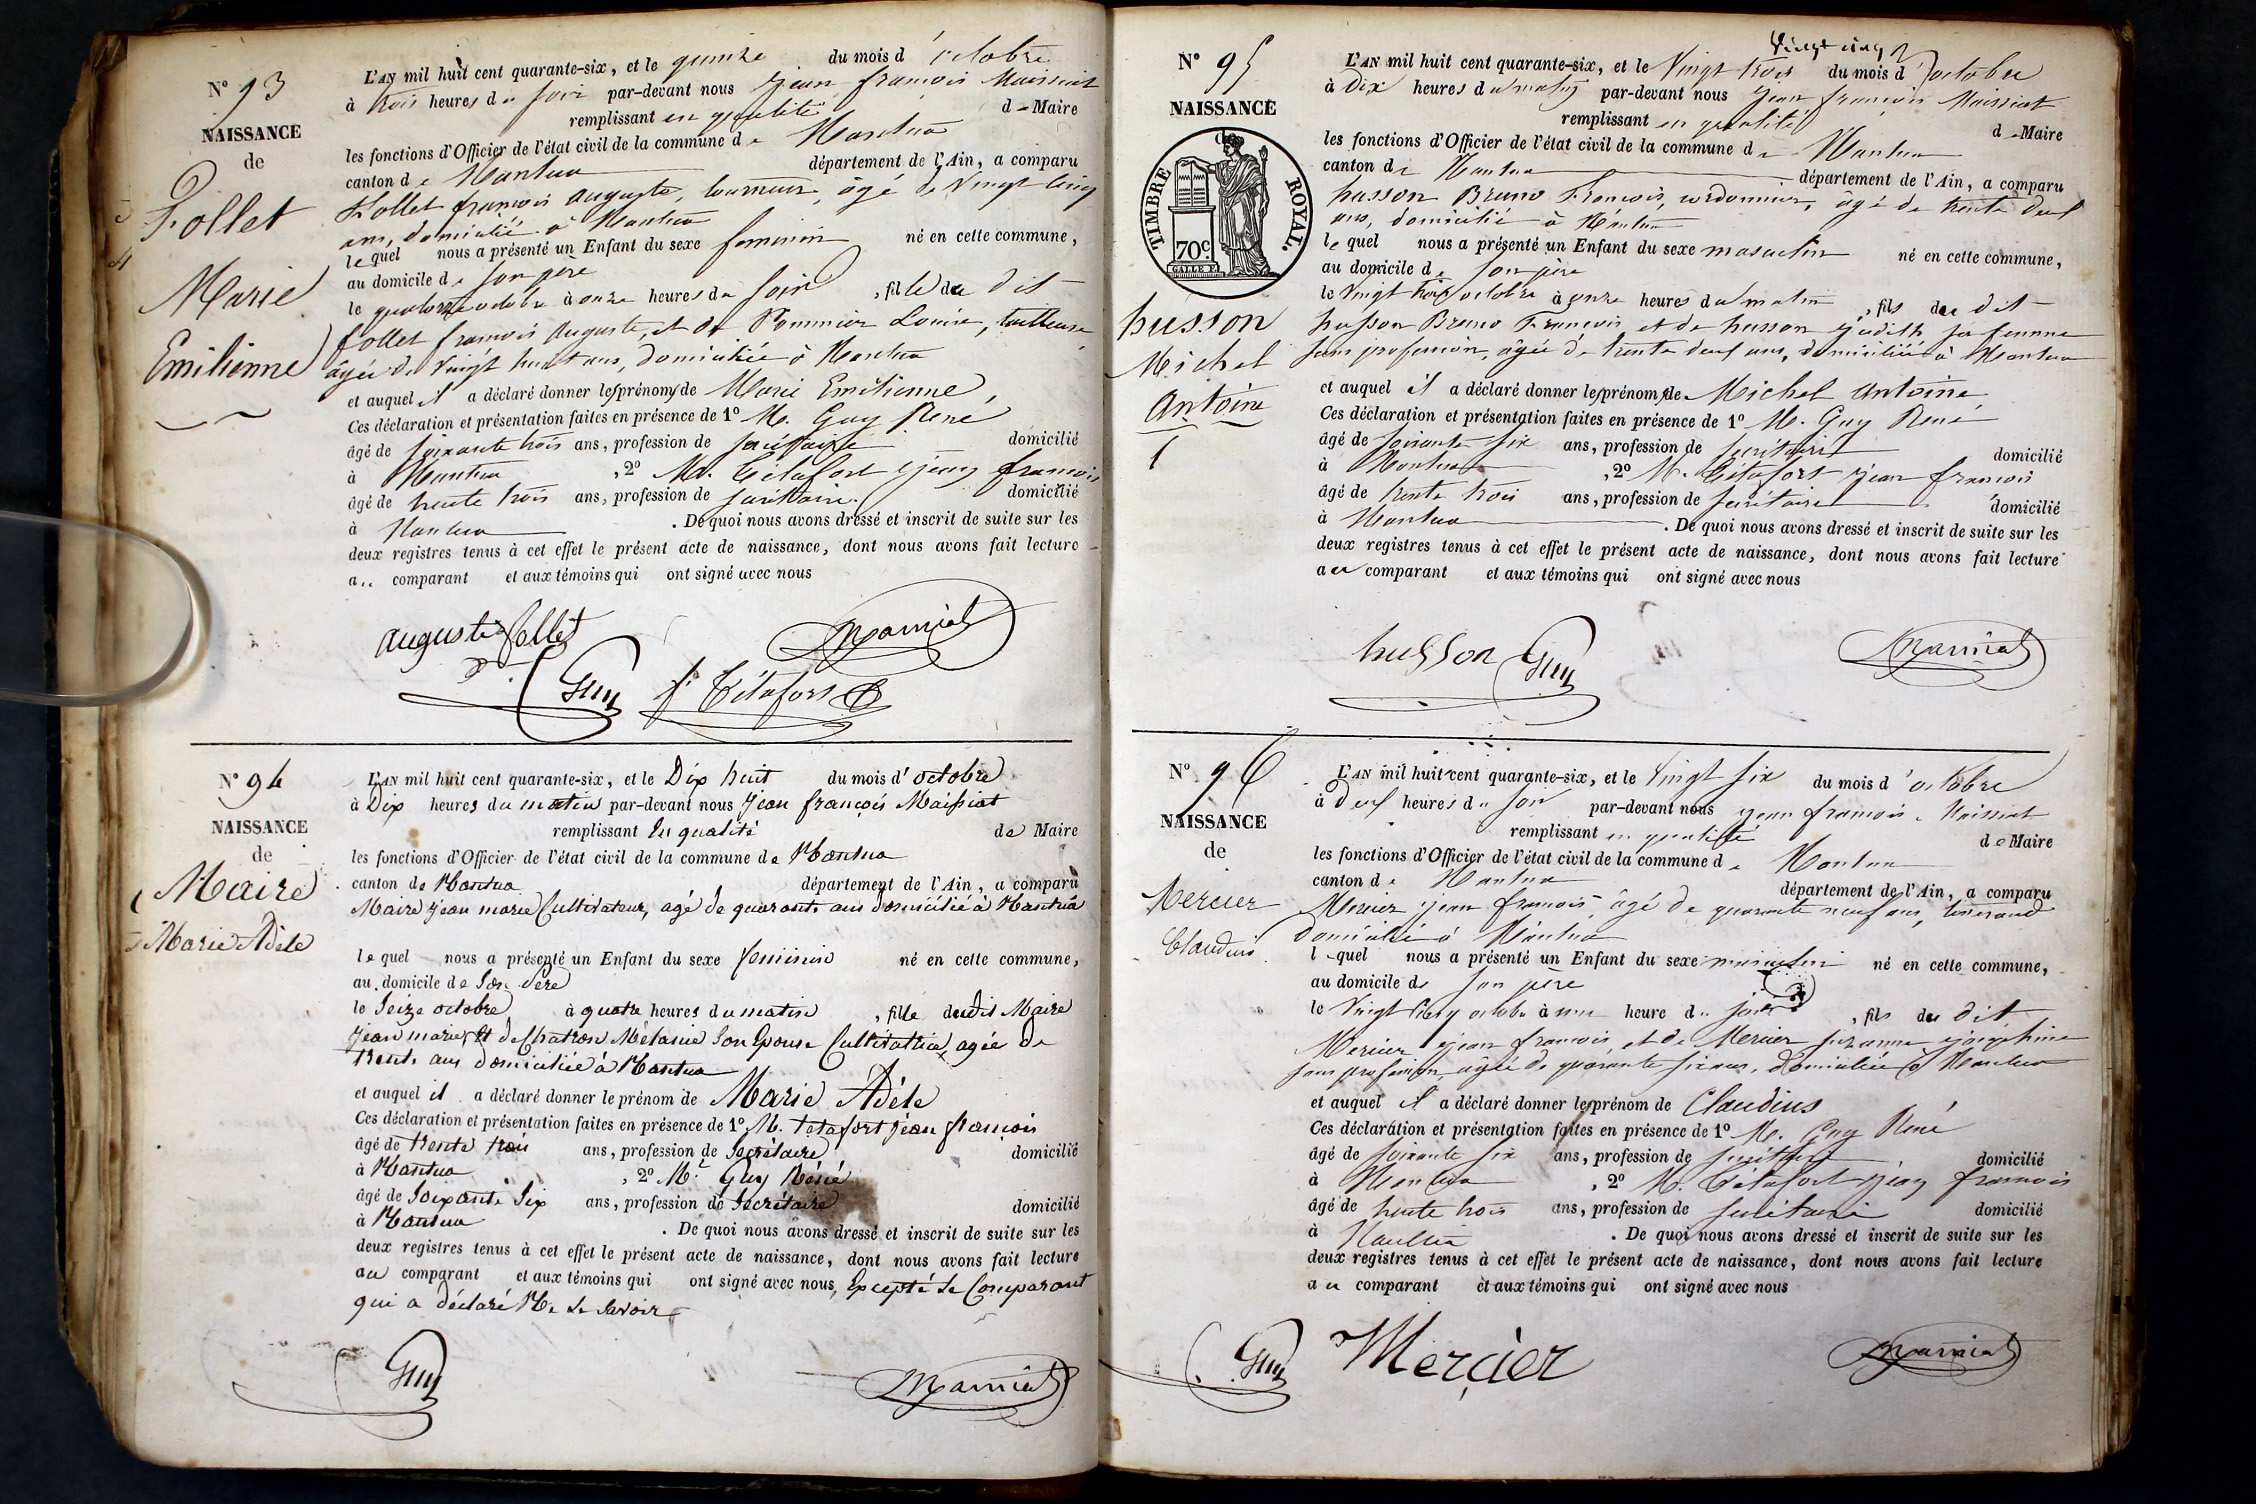 N° 93
NAISSANCE
de
Follet
Marie
Emilienne
L'AN mil huit cent quarante-six, et le quinze du mois d'octobre
à trois heures du soir par-devant nous Jean françois Maissiat
remplissant en qualité de Maire
les fonctions d'Officier de l'état civil de la commune de Nantua
canton de Nantua département de l'Ain, a comparu
Follet françois auguste, tourneur, âgé de Vingt cinq
ans, domicilié à Nantua
lequel nous a présenté un Enfant du sexe feminin né en cette commune,
au domicile de son père
le quatorze octobre à onze heures du soir, fille du dit
follet françois auguste, et de Pommier Louise, tailleuse,
âgée de Vingt huit ans, domiciliée à Nantua
et auquel il a déclaré donner les prénoms de Marie Emilienne,
Ces déclaration et présentation faites en présence de 1° M. Guy René
âgé de soixante trois ans, profession de secrétaire domicilié
à Nantua, 2° M. Tétafort Jean françois
âgé de trente trois ans, profession de secrétaire domicilié
à Nantua. De quoi nous avons dressé et inscrit de suite sur les
deux registres tenus à cet effet le présent acte de naissance, dont nous avons fait lecture
au comparant et aux témoins qui ont signé avec nous
auguste follet
Maissiat
Guy
Tétafort
N° 94
NAISSANCE
de
Maire
Marie Adèle
L'AN mil huit cent quarante-six, et le Dix huit du mois d'octobre
à Dix heures du matin par-devant nous Jean françois Maissiat
remplissant en qualité de Maire
les fonctions d'Officier de l'état civil de la commune de Nantua
canton de Nantua département de l'Ain, a comparu
Maire Jean marie Cultivateur, agé de quarante ans domicilié à Nantua
lequel nous a présenté un Enfant du sexe féminin né en cette commune,
au domicile de Son Père
le Seize octobre à quatre heures du matin, fille dudit Maire
Jean marie, Et de Chatron Mélanie Son Epouse Cultivatrice, agée de
trente ans domiciliée à Nantua
et auquel il a déclaré donner le prénom de Marie Adèle
Ces déclaration et présentation faites en présence de 1° M. Tetafort Jean françois
âgé de trente trois ans, profession de Secrétaire domicilié
à Nantua, 2° Mr Guy Réné
âgé de Soixante Six ans, profession de Secrétaire domicilié
à Nantua. De quoi nous avons dressé et inscrit de suite sur les
deux registres tenus à cet effet le présent acte de naissance, dont nous avons fait lecture
au comparant et aux témoins qui ont signé avec nous, Excepté le Comparant
qui a déclaré Ne le Savoir
Guy
Maissiat
N° 95
NAISSANCE
TIMBRE ROYAL.
70c.
husson
Michel
Antoine
1
Vingt cinq
L'AN mil huit cent quarante-six, et le Vingt trois du mois d'octobre
à Dix heures du matin par-devant nous Jean françois Maissiat
remplissant en qualité de Maire
les fonctions d'Officier de l'état civil de la commune de Nantua
canton de Nantua département de l'Ain, a comparu
husson Bruno François, cordonnier, âgé de trente deux
ans, domicilié à Nantua
lequel nous a présenté un Enfant du sexe masculin né en cette commune,
au domicile de son père
le Vingt trois octobre à onze heures du matin, fils du dit
husson Bruno François et de husson Judith sa femme
sans profession, âgée de trente deux ans, domiciliée à Nantua
et auquel il a déclaré donner les prénoms de Michel Antoine
Ces déclaration et présentation faites en présence de 1° M. Guy René
âgé de soixante six ans, profession de secrétaire domicilié
à Nantua, 2° M. Tétafort Jean françois
âgé de trente trois ans, profession de secrétaire domicilié
à Nantua. De quoi nous avons dressé et inscrit de suite sur les
deux registres tenus à cet effet le présent acte de naissance, dont nous avons fait lecture
au comparant et aux témoins qui ont signé avec nous
husson
Guy
Maissiat
N° 96
NAISSANCE
de
Mercier
Claudius
L'AN mil huit cent quarante-six, et le Vingt six du mois d'octobre
à deux heures du soir par-devant nous Jean françois Maissiat
remplissant en qualité de Maire
les fonctions d'Officier de l'état civil de la commune de Nantua
canton de Nantua département de l'Ain, a comparu
Mercier Jean françois âgé de quarante neuf ans, tisserand
domicilié à Nantua
lequel nous a présenté un Enfant du sexe masculin né en cette commune,
au domicile de son père
le Vingt cinq octobre à une heure du soir, fils du dit
Mercier Jean françois, et de Mercier suzanne joséphine
sans profession, âgée de quarante six ans, domiciliée à Nantua
et auquel il a déclaré donner les prénom de Claudius
Ces déclaration et présentation faites en présence de 1° M. Guy René
âgé de soixante six ans, profession de secrétaire domicilié
à Nantua, 2° M. Tétafort Jean françois
âgé de trente trois ans, profession de secrétaire domicilié
à Nantua. De quoi nous avons dressé et inscrit de suite sur les
deux registres tenus à cet effet le présent acte de naissance, dont nous avons fait lecture
au comparant et aux témoins qui ont signé avec nous
Guy
Mercier
Maissiat